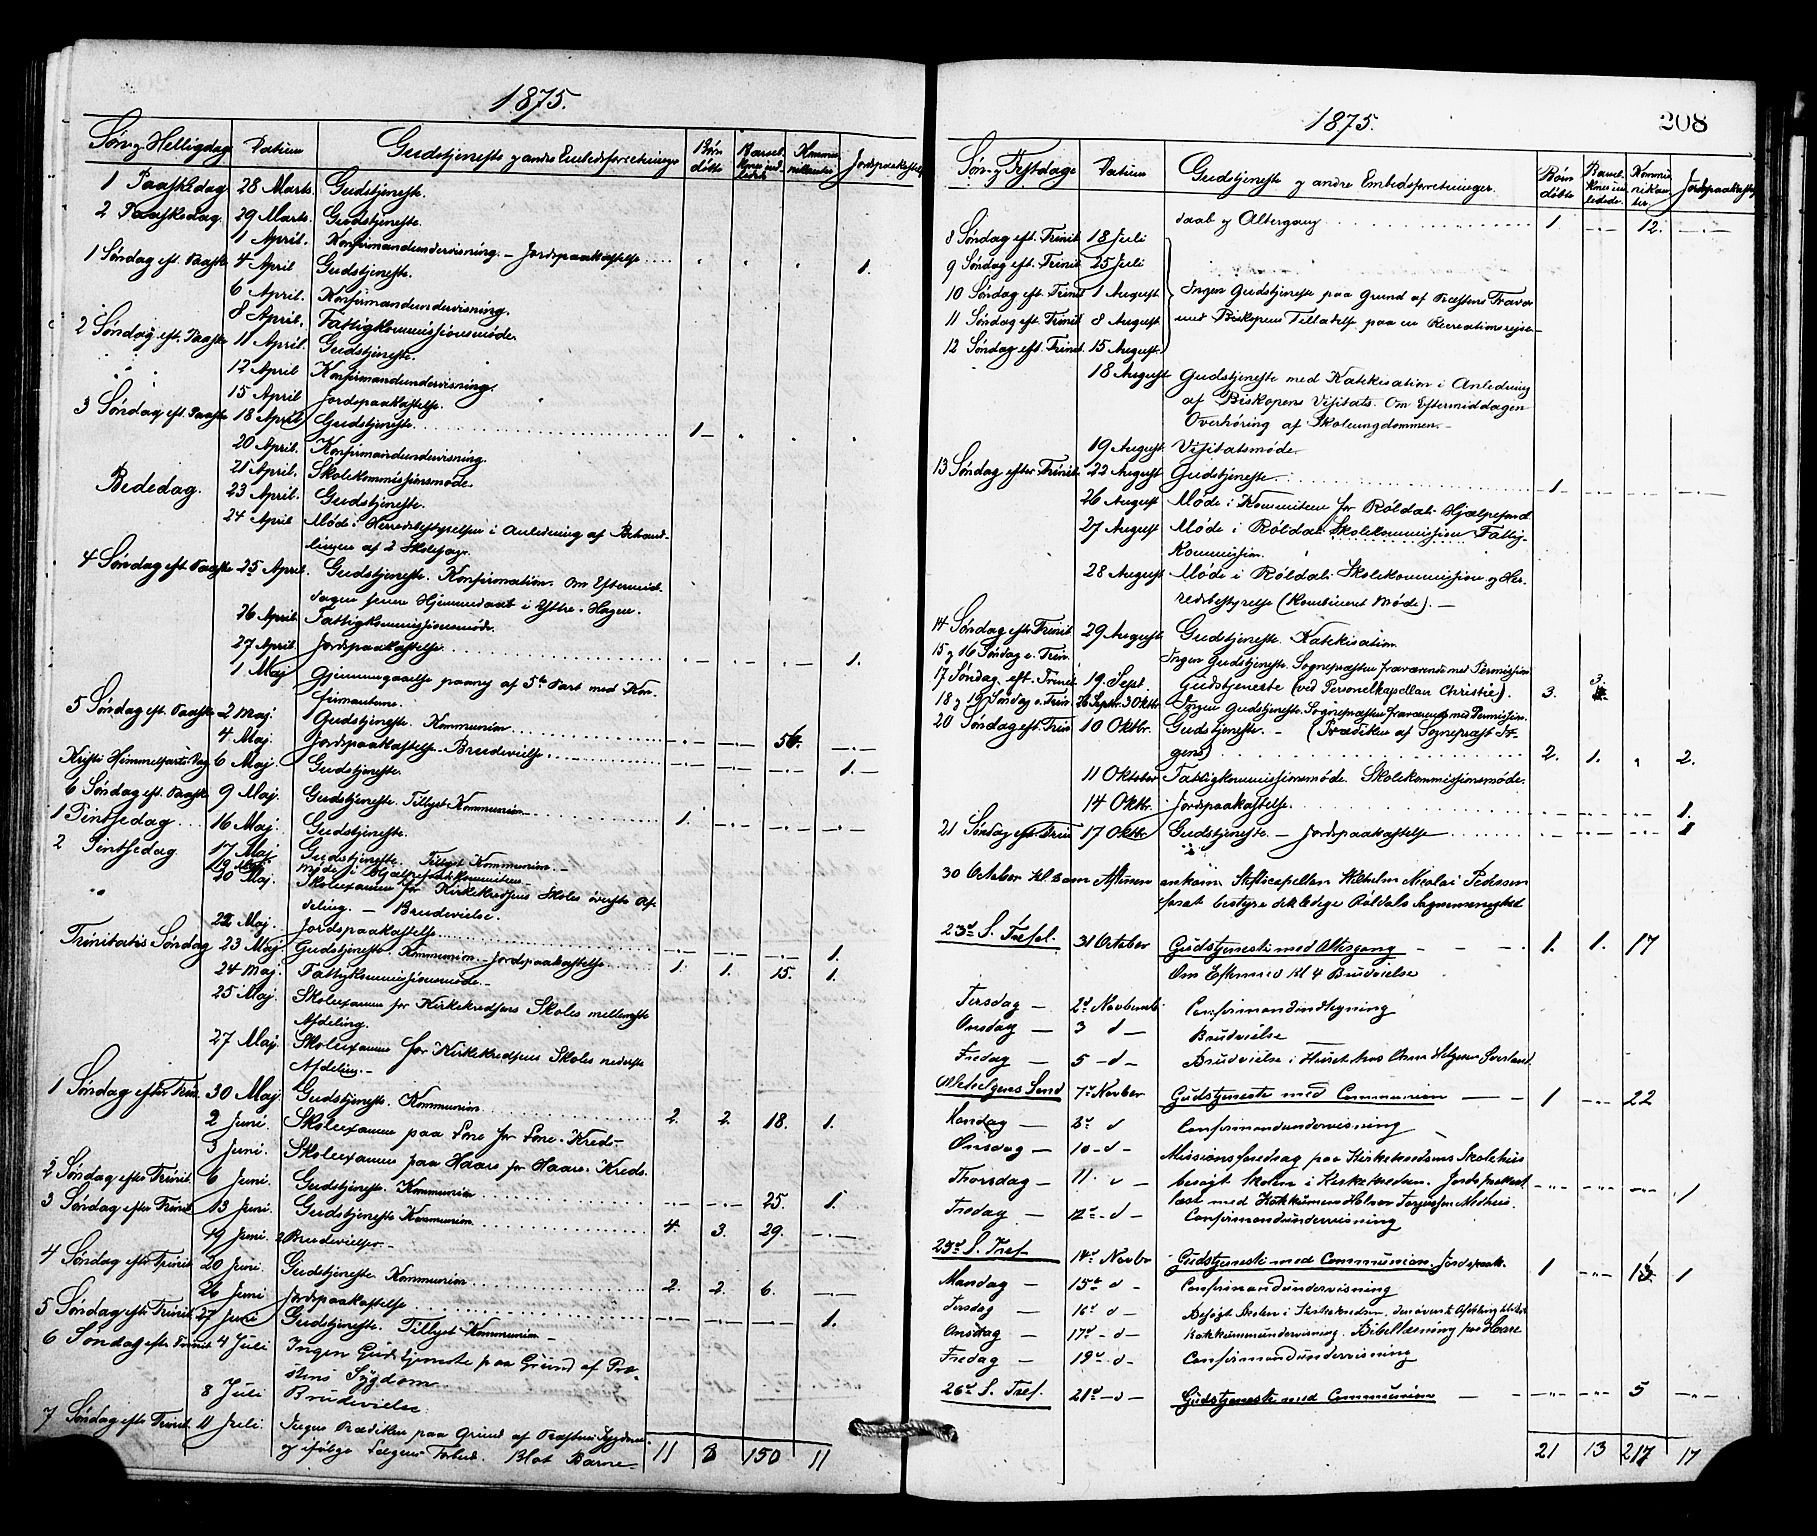 1875.
Søn- og Helligdag Datum Gudstjeneste og andre Embedsforretninger Børn døbte Barselkoner indledede Kommunikanter Jordpaakastelse
1 Paaskedag 28 Marts Gudstjeneste
2 Paaskedag. 29 Marts Gudstjeneste.
1 April. Konfirmandundervisning. – Jordspaakastelse . . . . 1.
1 Søndag eft. Paaske 4 April Gudstjeneste.
6 April. Konfirmandundervisning.
8 April. Fattigkommissionsmøde.
2 Søndag eft. Paaske 11 April. Gudstjeneste.
12 April Konfirmandundervisning.
15 April Jordspaakastelse.
3 Søndag eft. Paaske 18 April Gudstjeneste. 1 –
20 April. Konfirmandundervisning.
21 April. Skolekommissionsmøde.
Bededag. 23 April. Gudstjeneste.
24 April Møde i Herredsbestyrelsen i Anledning af Behand-
lingen af 2 Skolesager.
4 Søndag eft. Paaske 25 April. Gudstjeneste. Konfirmation. Om Eftermid-
dagen
26 April Fattigkommissionsmøde.
27 April. Jordspaakastelse 1.
1 Maj Gjennemgaaelse paany af 5te Part med Kon-
firmanterne.
5 Søndag eft. Paaske 2 Maj. Gudstjeneste. Kommunion 56.
4 Maj. Jordspaakastelse. Brudevielse 1. –
Kristi Himmelfarts Dag 6 Maj. Gudstjeneste.
6 Søndag eft. Paaske 9 Maj. Gudstjeneste. Tillyst Kommunion 1.
1 Pintsedag 16 Maj. Gudstjeneste.
2 Pintsedag 17 Maj. Gudstjeneste. Tillyst Kommunion. –
19 Maj. Møde i Hjælpefondskomiteen –
20 Maj. Skoleexamen for Kirkekredsens Skoles øverste Af-
deling. – Brudevielse.
22 Maj. Jordspaakastelse 1.
Trinitatis Søndag 23 Maj Gudstjeneste. Kommunion. – Jordspaakastelse 1. 1. 15. 1.
24 Maj. Fattigkommissionsmøde. –
25 Maj. Skoleexamen for Kirkekredsens Skoles mellemste
Afdeling.
27 Maj. Skoleexamen for Kirkekredsens Skoles nederste
Afdeling. –
1 Søndag efter Trin. 30 Maj. Gudstjeneste. Kommunion 2. 2. 18. 1.
2 Juni. Skoleexamen paa Lone for Lone-Kreds. –
3 Juni. Skoleexamen paa Haare for Haare-Kreds.
2 Søndag efter Trinit. 6 Juni. Gudstjeneste. Kommunion 25. 1.
3 Søndag efter Trinit. 13 Juni. Gudstjeneste Kommunion 4. 3. 29.
19 Juni. 2 Brudevielser –
4 Søndag efter Trinit. 20 Juni. Gudstjeneste Kommunion 2. 2. 6.
26 Juni Jordspaakastelse 1.
5 Søndag efter Trinit. 27 Juni Gudstjeneste. Tillyst Kommunion –
6 Søndag efter Trinit 4 Juli Ingen Gudstjeneste paa Grund af Præ-
stens Sygdom.
8 Juli Brudevielse.
7 Søndag efter Trinit. 11 Juli. Ingen Prædiken paa Grund af Præstens Sygdom
og ifølge Lægens Forbud. Blot Barne- 11 8 150 11
1875. 208
Søn- og Festdage Datum Gudstjeneste og andre Embedsforretninger. Børn døbte Barselkoner indledede. Kommunikanter. Jordspaakastelse
daab og Altergang 1 – 12.
8 Søndag eft. Trinit 18 Juli
9 Søndag eft. Trinit. 25 Juli
10 Søndag eft. Trinit 1 August Ingen Gudstjeneste paa Grund af Præstens Fravær
11 Søndag eft. Trinit 8 August med Biskopens Tilladelse paa en Recreationsrejse –
12 Søndag eft. Trinit. 15 August.
18 August Gudstjeneste med Katekisation i Anledning
af Biskopens Visitats. Om Eftermiddagen
Overhøring af Skoleungdommen. –
19 August Visitatsmøde.
13 Søndag efter Trinit. 22 August Gudstjeneste. 1
26 August Møde i Komiteen for Røldals Hjælpefond
27 August Møde i Røldals Skolekommission Fattig-
kommission.
28 August Møde i Røldals Skolekommission og Her-
redsbestyrelse (Kombineret Møde). –
14 Søndag efter Trinit. 29 August Gudstjeneste. Katekisation.
15 og 16 Søndag e. Trin. Ingen Gudstjeneste. Sognepræsten fraværende med Permission
17 Søndag. eft. Trinit. 19. Sept. Gudstjeneste (ved Personelkapellan Christie). 3. 3.
18 og 19 Søndag e. Trin. 26 Septbr. 3 Oktbr. Ingen Gudstjeneste. Sognepræsten fraværende med Permission.
20 Søndag eft. Trin. 10 Oktbr. Gudstjeneste. – (Prædiken af Sognepræst
gens) 2. 1. 2.
11 Oktober Fattigkommissionsmøde. Skolekommissionsmøde.
14 Oktbr. Jordspaakastelse. 1.
21 Søndag eft Trin 17 Oktbr Gudstjeneste. – Jordspaakastelse 1
30 October Kl 8 om Aftenen ankom Stiftscapellan Wilhelm Nicolai Pedersen
for at bestyre det ledige Røldals Sognemenighed
23de S. Tref. 31 October Gudstjeneste med Altergang 1. 1. 17
Om Efterm kl 4 Brudvielse
Tirsdag – 2d Novbember Confirmandindtegning
Onsdag – 3 d – Brudvielse
Fredag – 5 – d – Brudvielse i Huset hos
Allehelgens Sønd 7de Novber Gudstjeneste med Communion 1 22
Mandag – 8de d Confirmandundervisning
Onsdag – 10 – d – Missionsforedrag paa Kirkekredsens Skolehus
Thorsdag – 11. d – besøgt Skolen i Kirkekredsen. Jordspaakast 1
Fredag – 12te – d – Confirmandundervisning
25de S. Tref 14de Novbr Gudstjeneste med Communion. Jordspaak. 1 13 1
Mandag – 15de d – Confirmandundervisning
Tirsdag – 16de d – Besøgt Skolen i Kirkekredsen,
Onsdag – 17de – d – Bibellæsning paa Haare
Fredag – 19de – d – Confirmandundervisning
26de S. Tref. 21de – d – Gudstjeneste med Communion 5
21 13 217 17